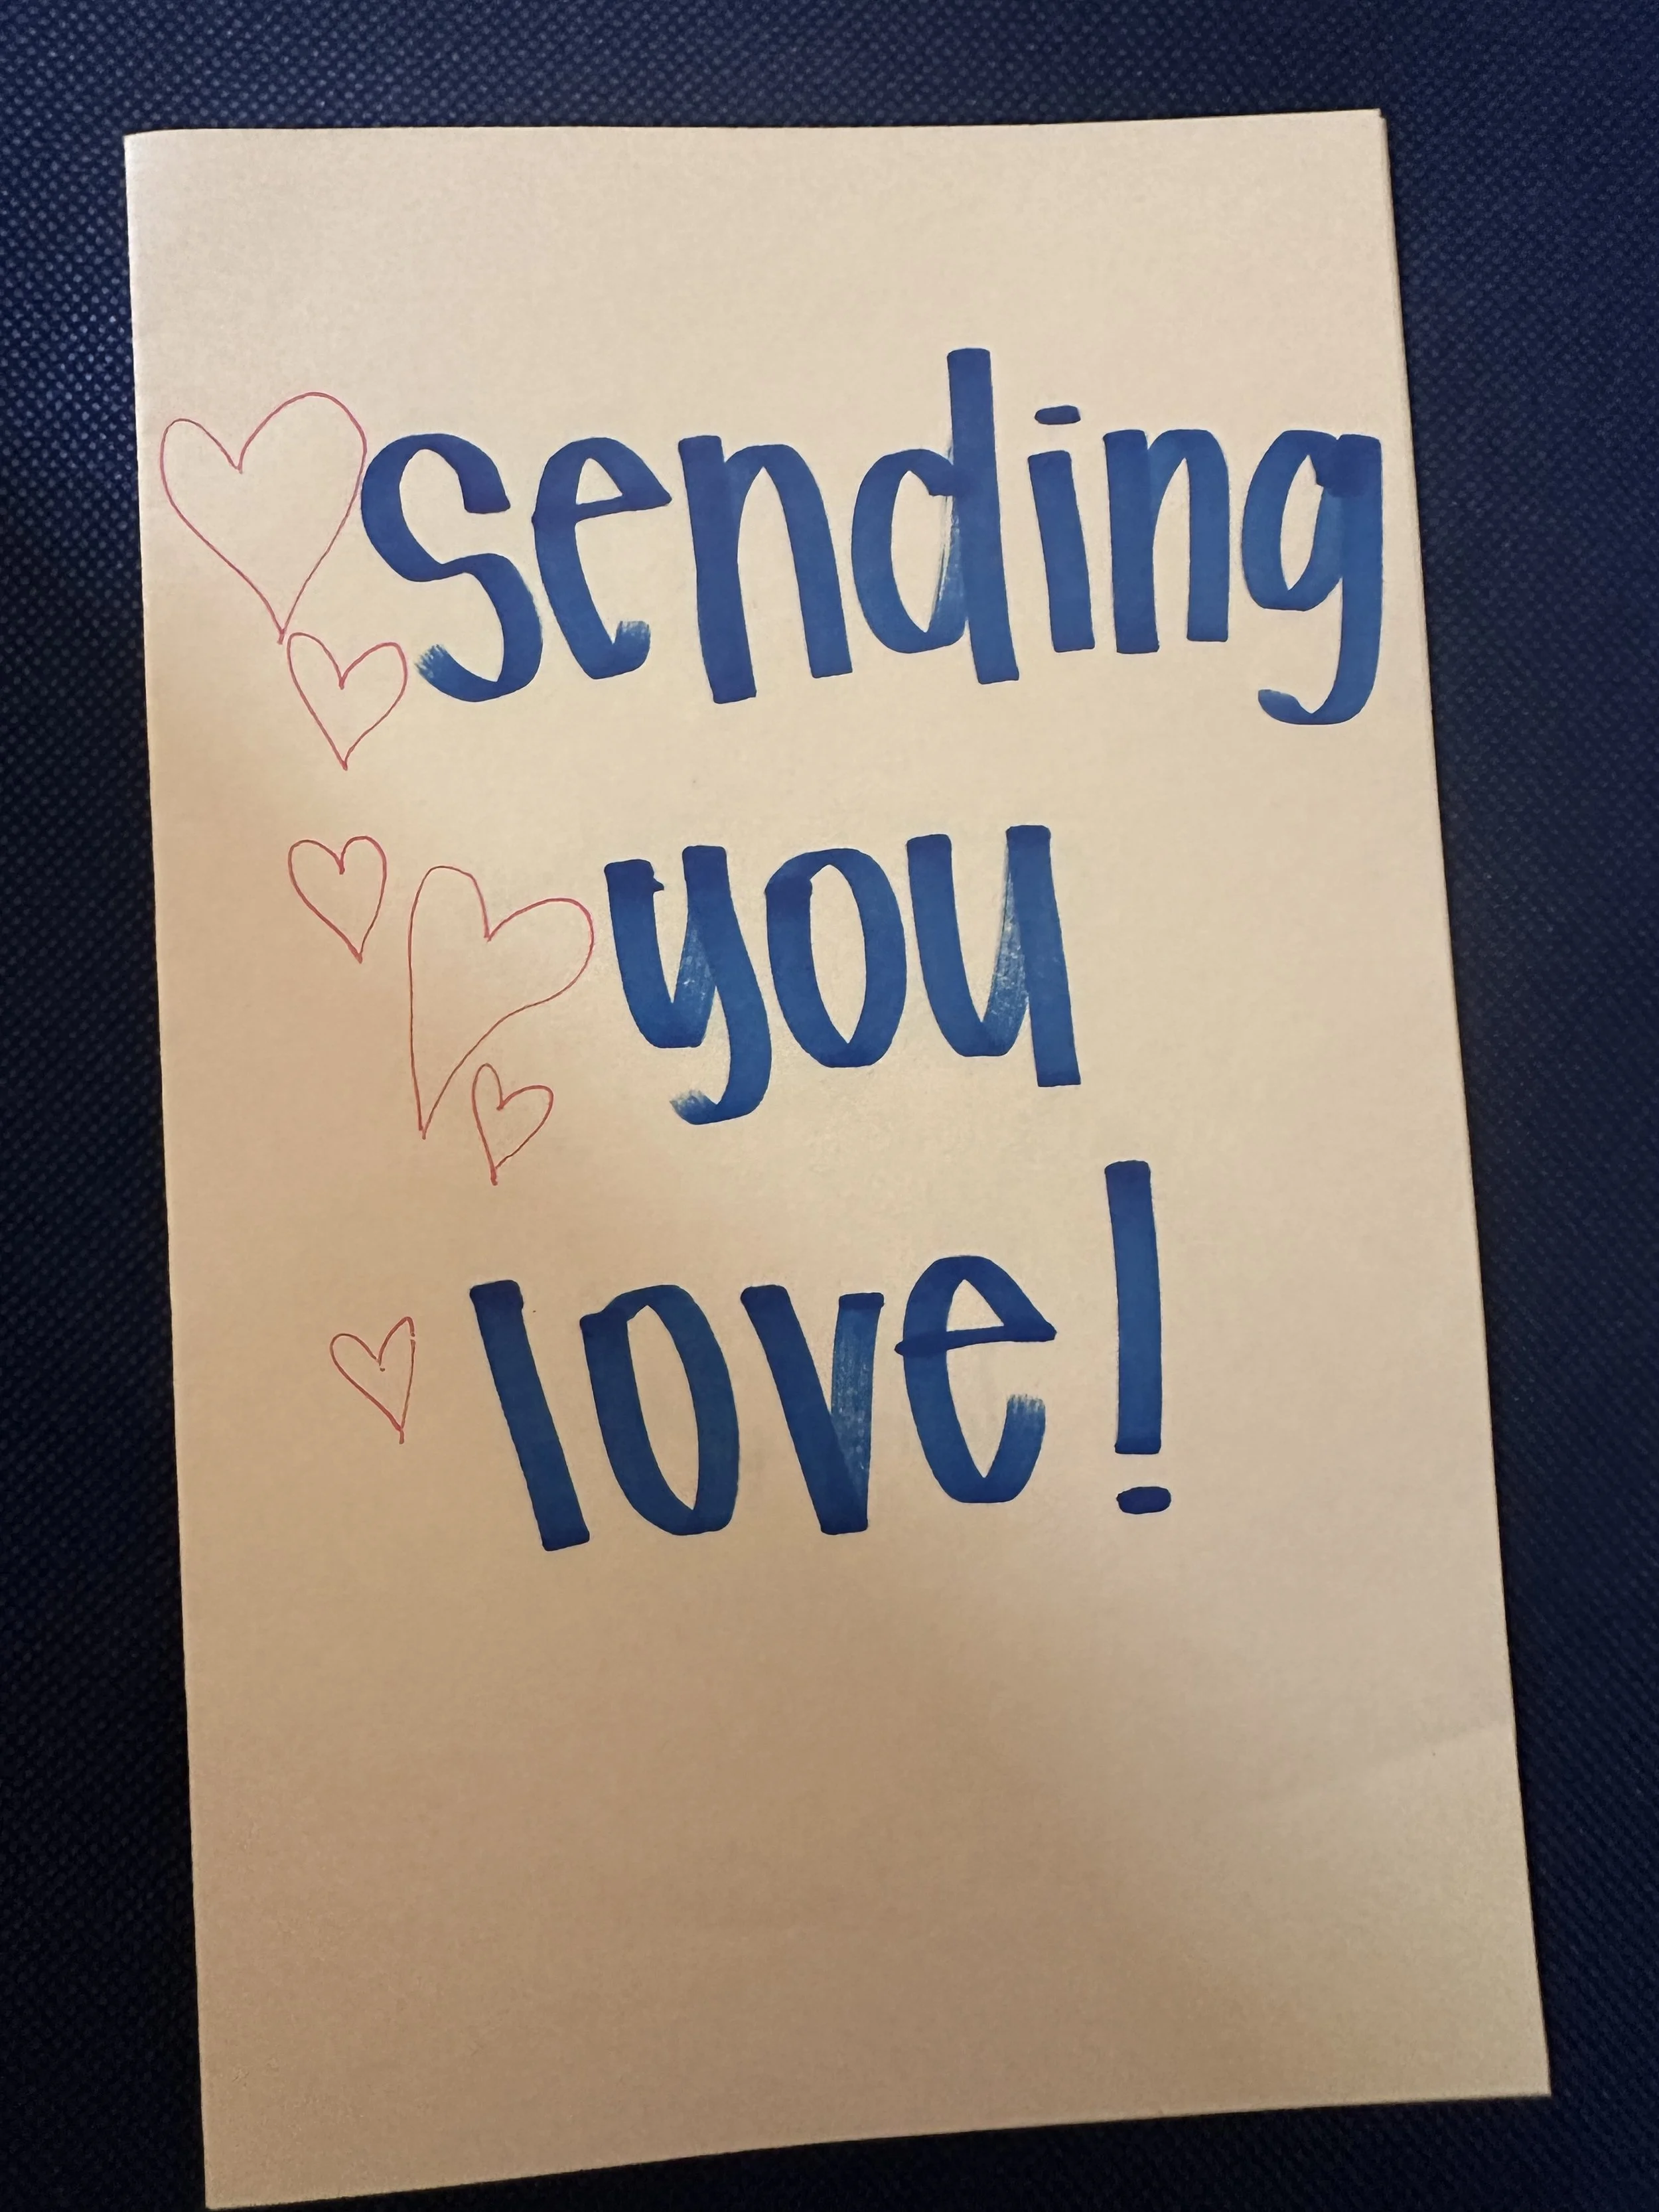 sending
you
love!